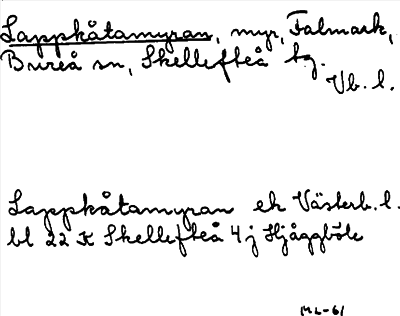 Lappkåtamyran, myr, Falmark,
Bureå sn, Skellefteå tg.
Vb. l.
Lappkåtamyran ek Västerb. l.
bl 22 K Skellefteå 4 j Hjåggböle
ML-61